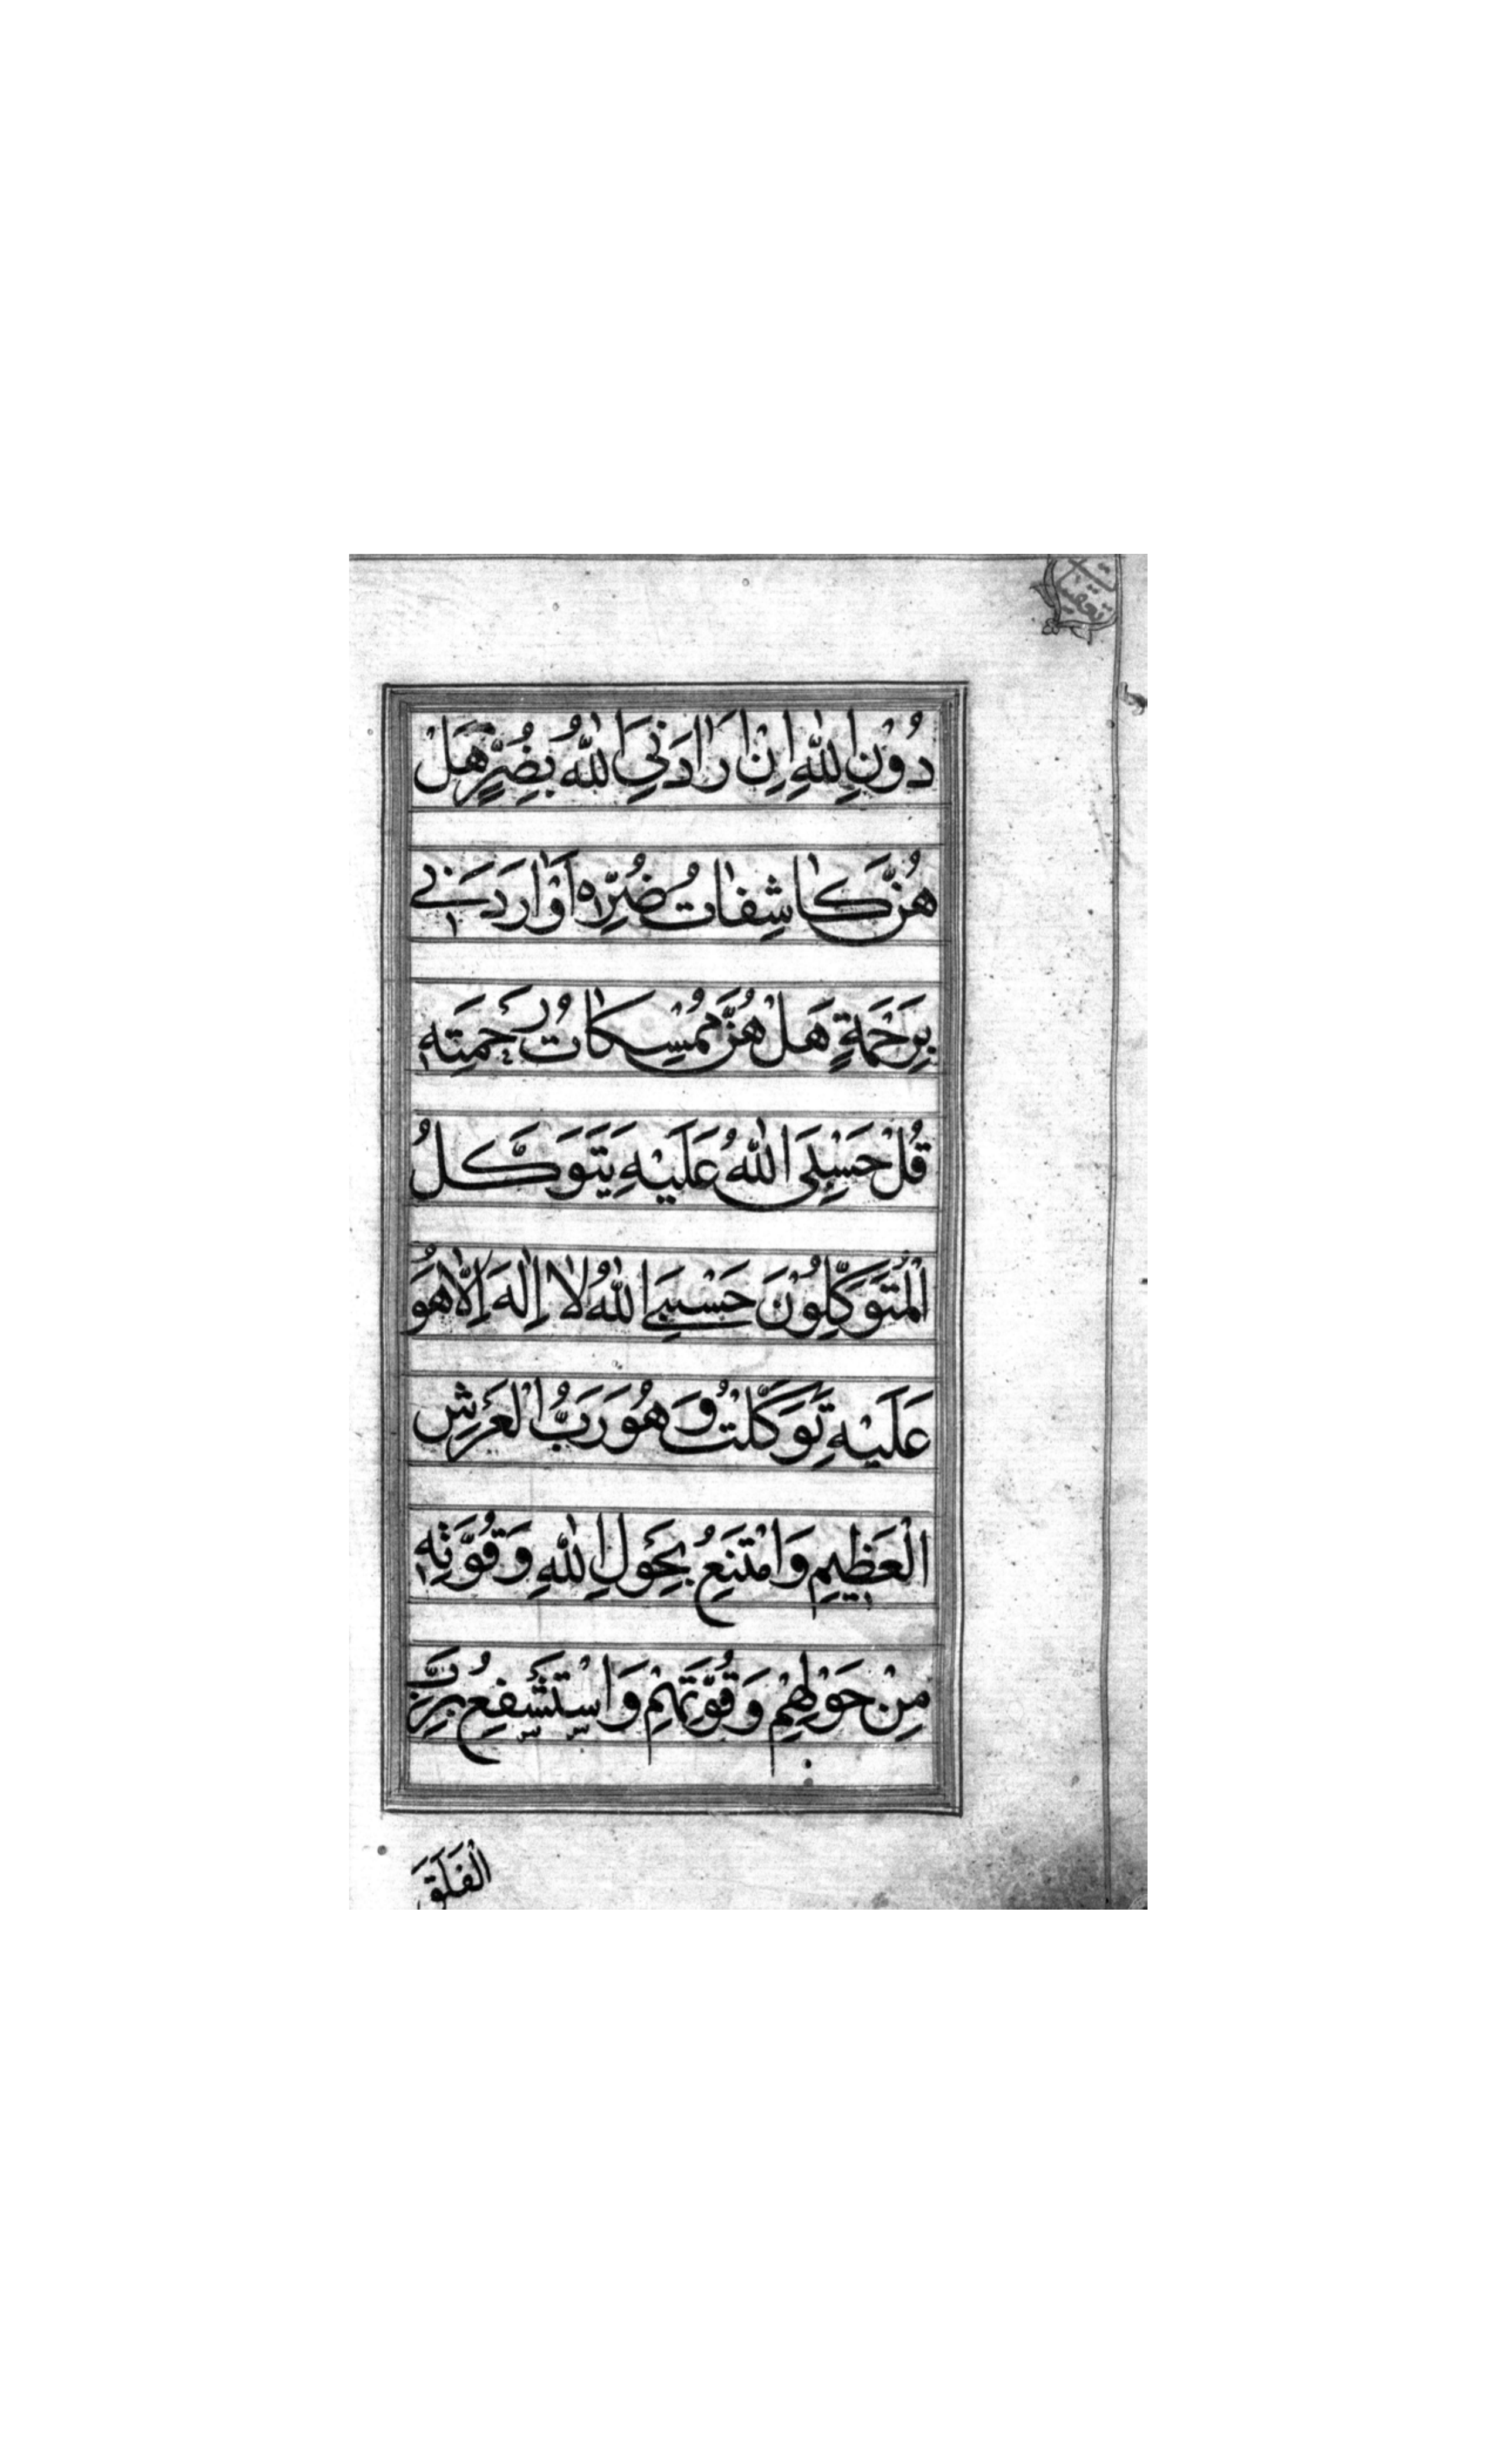 تعقيب
دُوْنِ اللّٰهِ اِنْ اَرَادَنِيَ اللّٰهُ بِضُرٍّ هَلْ
هُنَّ كَاشِفَاتُ ضُرِّهِ اَوْ اَرَادَنِي
بِرَحْمَةٍ هَلْ هُنَّ مُمْسِكَاتُ رَحْمَتِهِ
قُلْ حَسْبِيَ اللّٰهُ عَلَيْهِ يَتَوَكَّلُ
الْمُتَوَكِّلُوْنَ حَسْبِيَ اللّٰهُ لَا اِلٰهَ اِلَّا هُوَ
عَلَيْهِ تَوَكَّلْتُ وَهُوَ رَبُّ الْعَرْشِ
الْعَظِيْمِ وَامْتَنِعُ بِحَوْلِ اللّٰهِ وَقُوَّتِهِ
مِنْ حَوْلِهِمْ وَقُوَّتِهِمْ وَاسْتَشْفِعُ بِرَبِّ
الْفَلَقِ